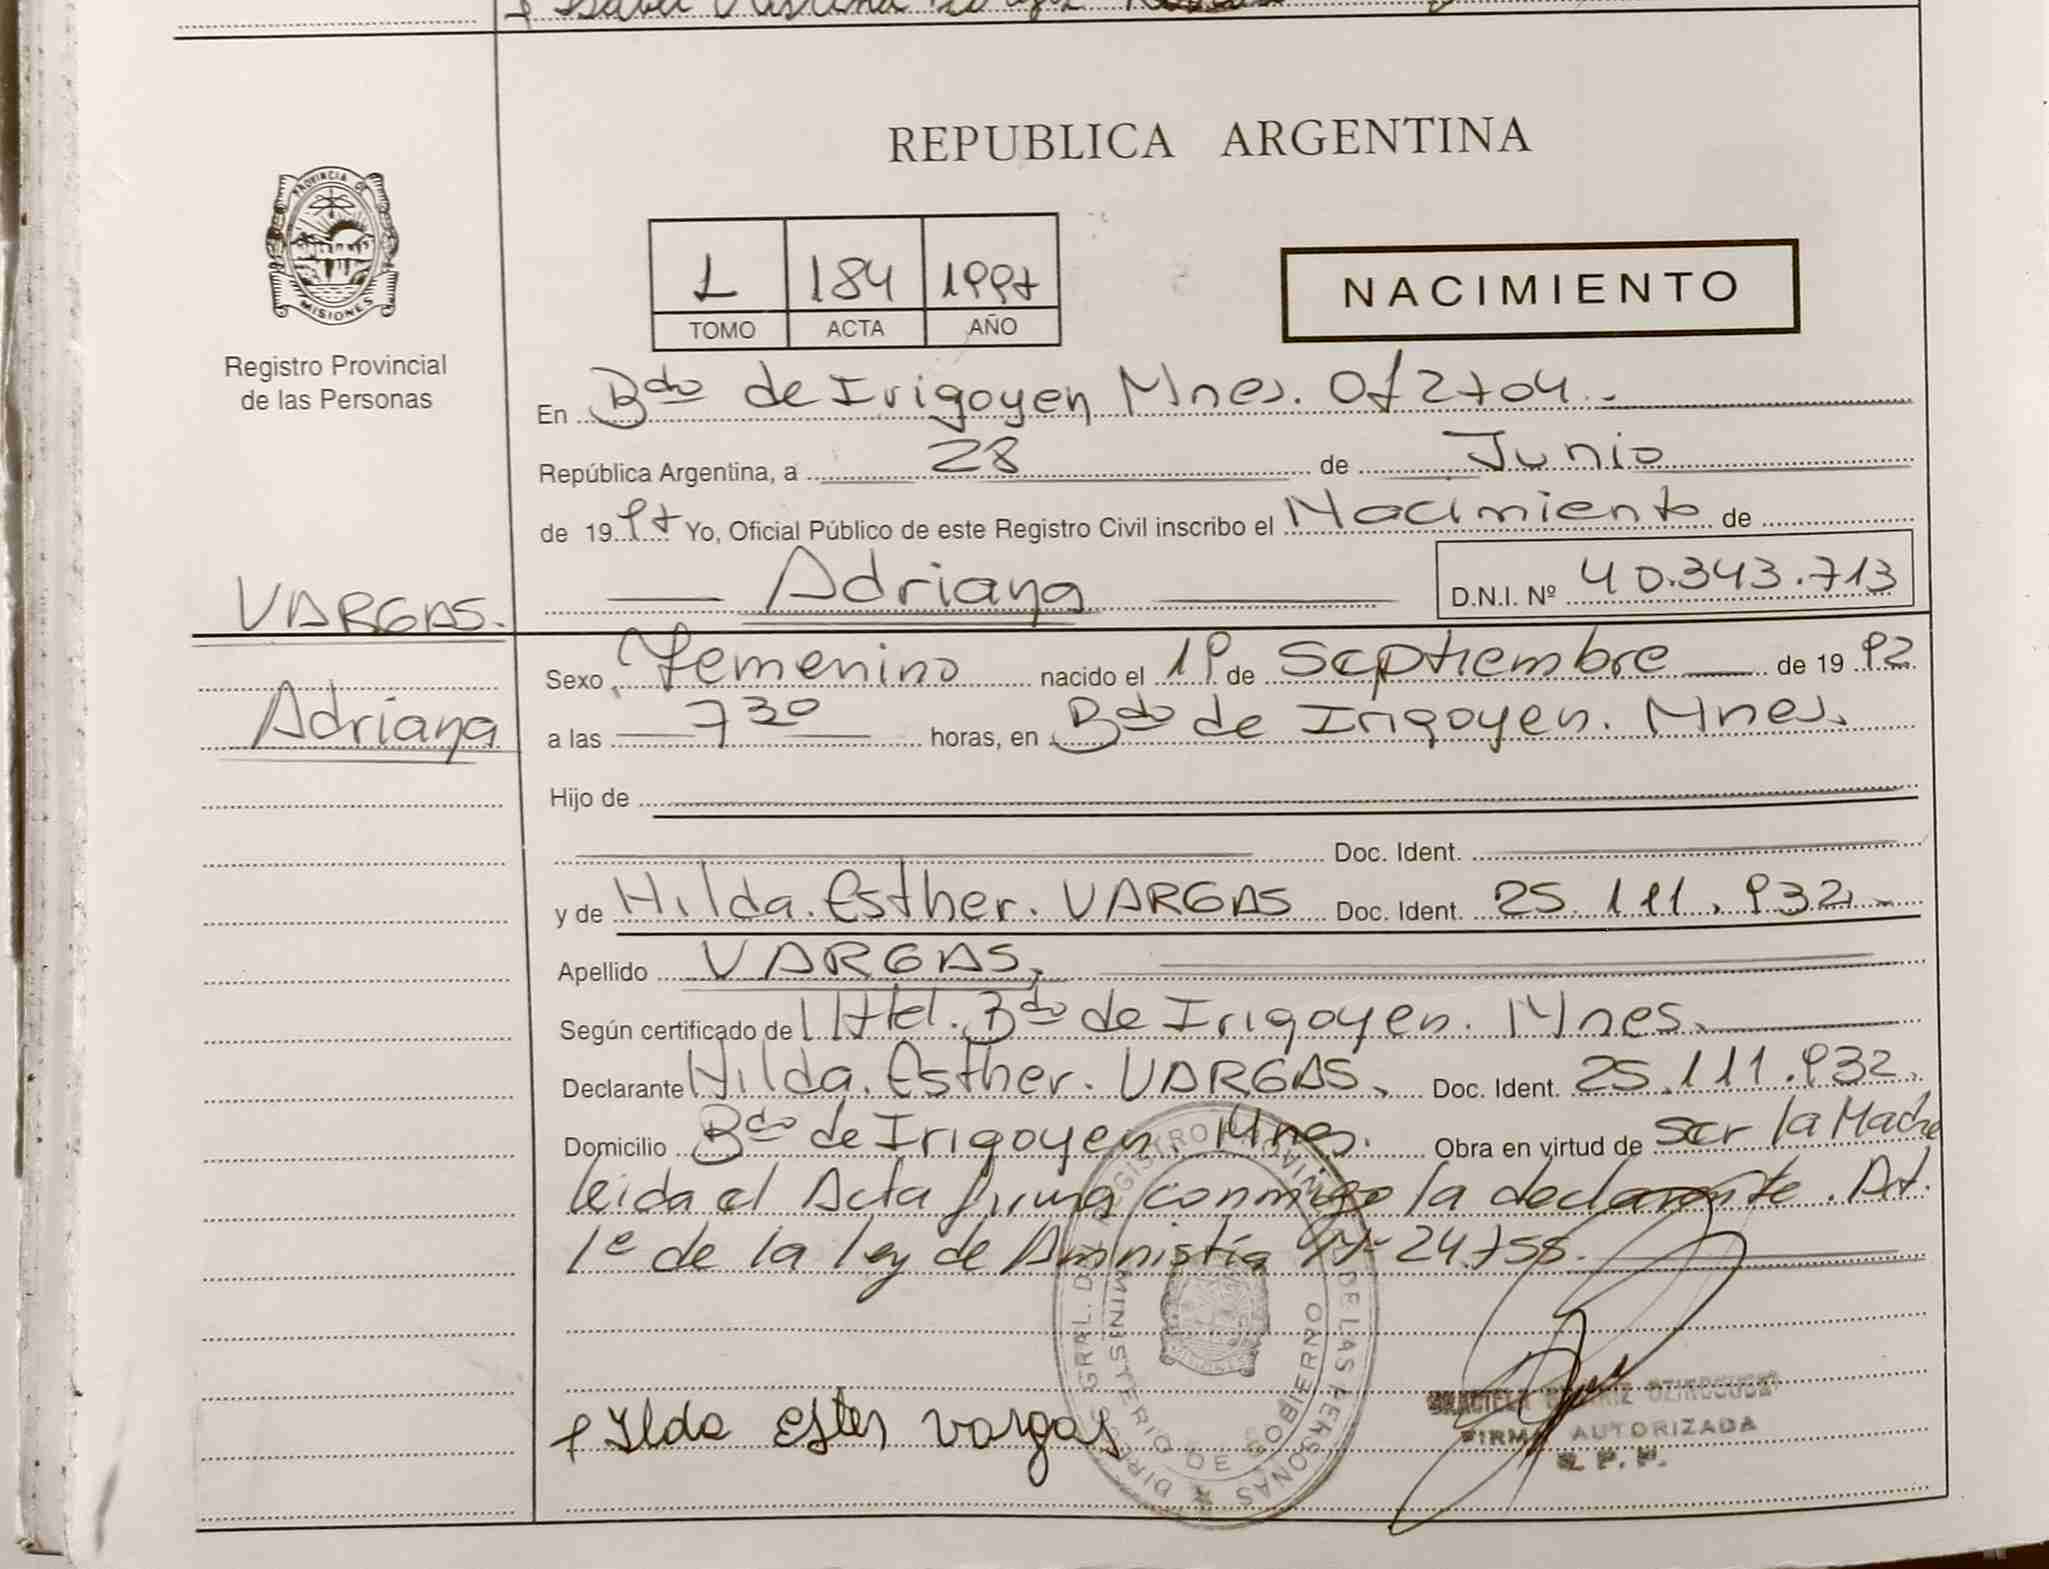 REPUBLICA ARGENTINA
PROVINCIA DE
MISIONES
Registro Provincial
de las Personas
1 184 1997
TOMO ACTA AÑO
NACIMIENTO
En Bdo de Irigoyen Mnes. Of 2704.
República Argentina, a 28 de Junio
de 1997 Yo, Oficial Público de este Registro Civil inscribo el Nacimiento de
Adriana D.N.I. Nº 40.343.713
VARGAS.
Adriana
Sexo Femenino nacido el 19 de Septiembre de 1992
a las 7 30 horas, en Bdo de Irigoyen. Mnes.
Hijo de
Doc. Ident.
y de Hilda. Esther. VARGAS Doc. Ident. 25.111.932.
Apellido VARGAS,
Según certificado de Bdo de Irigoyen. Mnes.
Declarante Hilda. Esther. VARGAS, Doc. Ident. 25.111.932.
Domicilio Bdo de Irigoyen Mnes. Obra en virtud de ser la Madre
leida el Acta firma conmigo la declarante. Art.
1º de la ley de Amnistía Nº 24.755.
DIREC. GRAL. DEL REGISTRO PROVINCIAL DE LAS PERSONAS
MINISTERIO DE GOBIERNO
Ilda Ester Vargas
GRACIELA BEATRIZ
FIRMA AUTORIZADA
R. P. P.